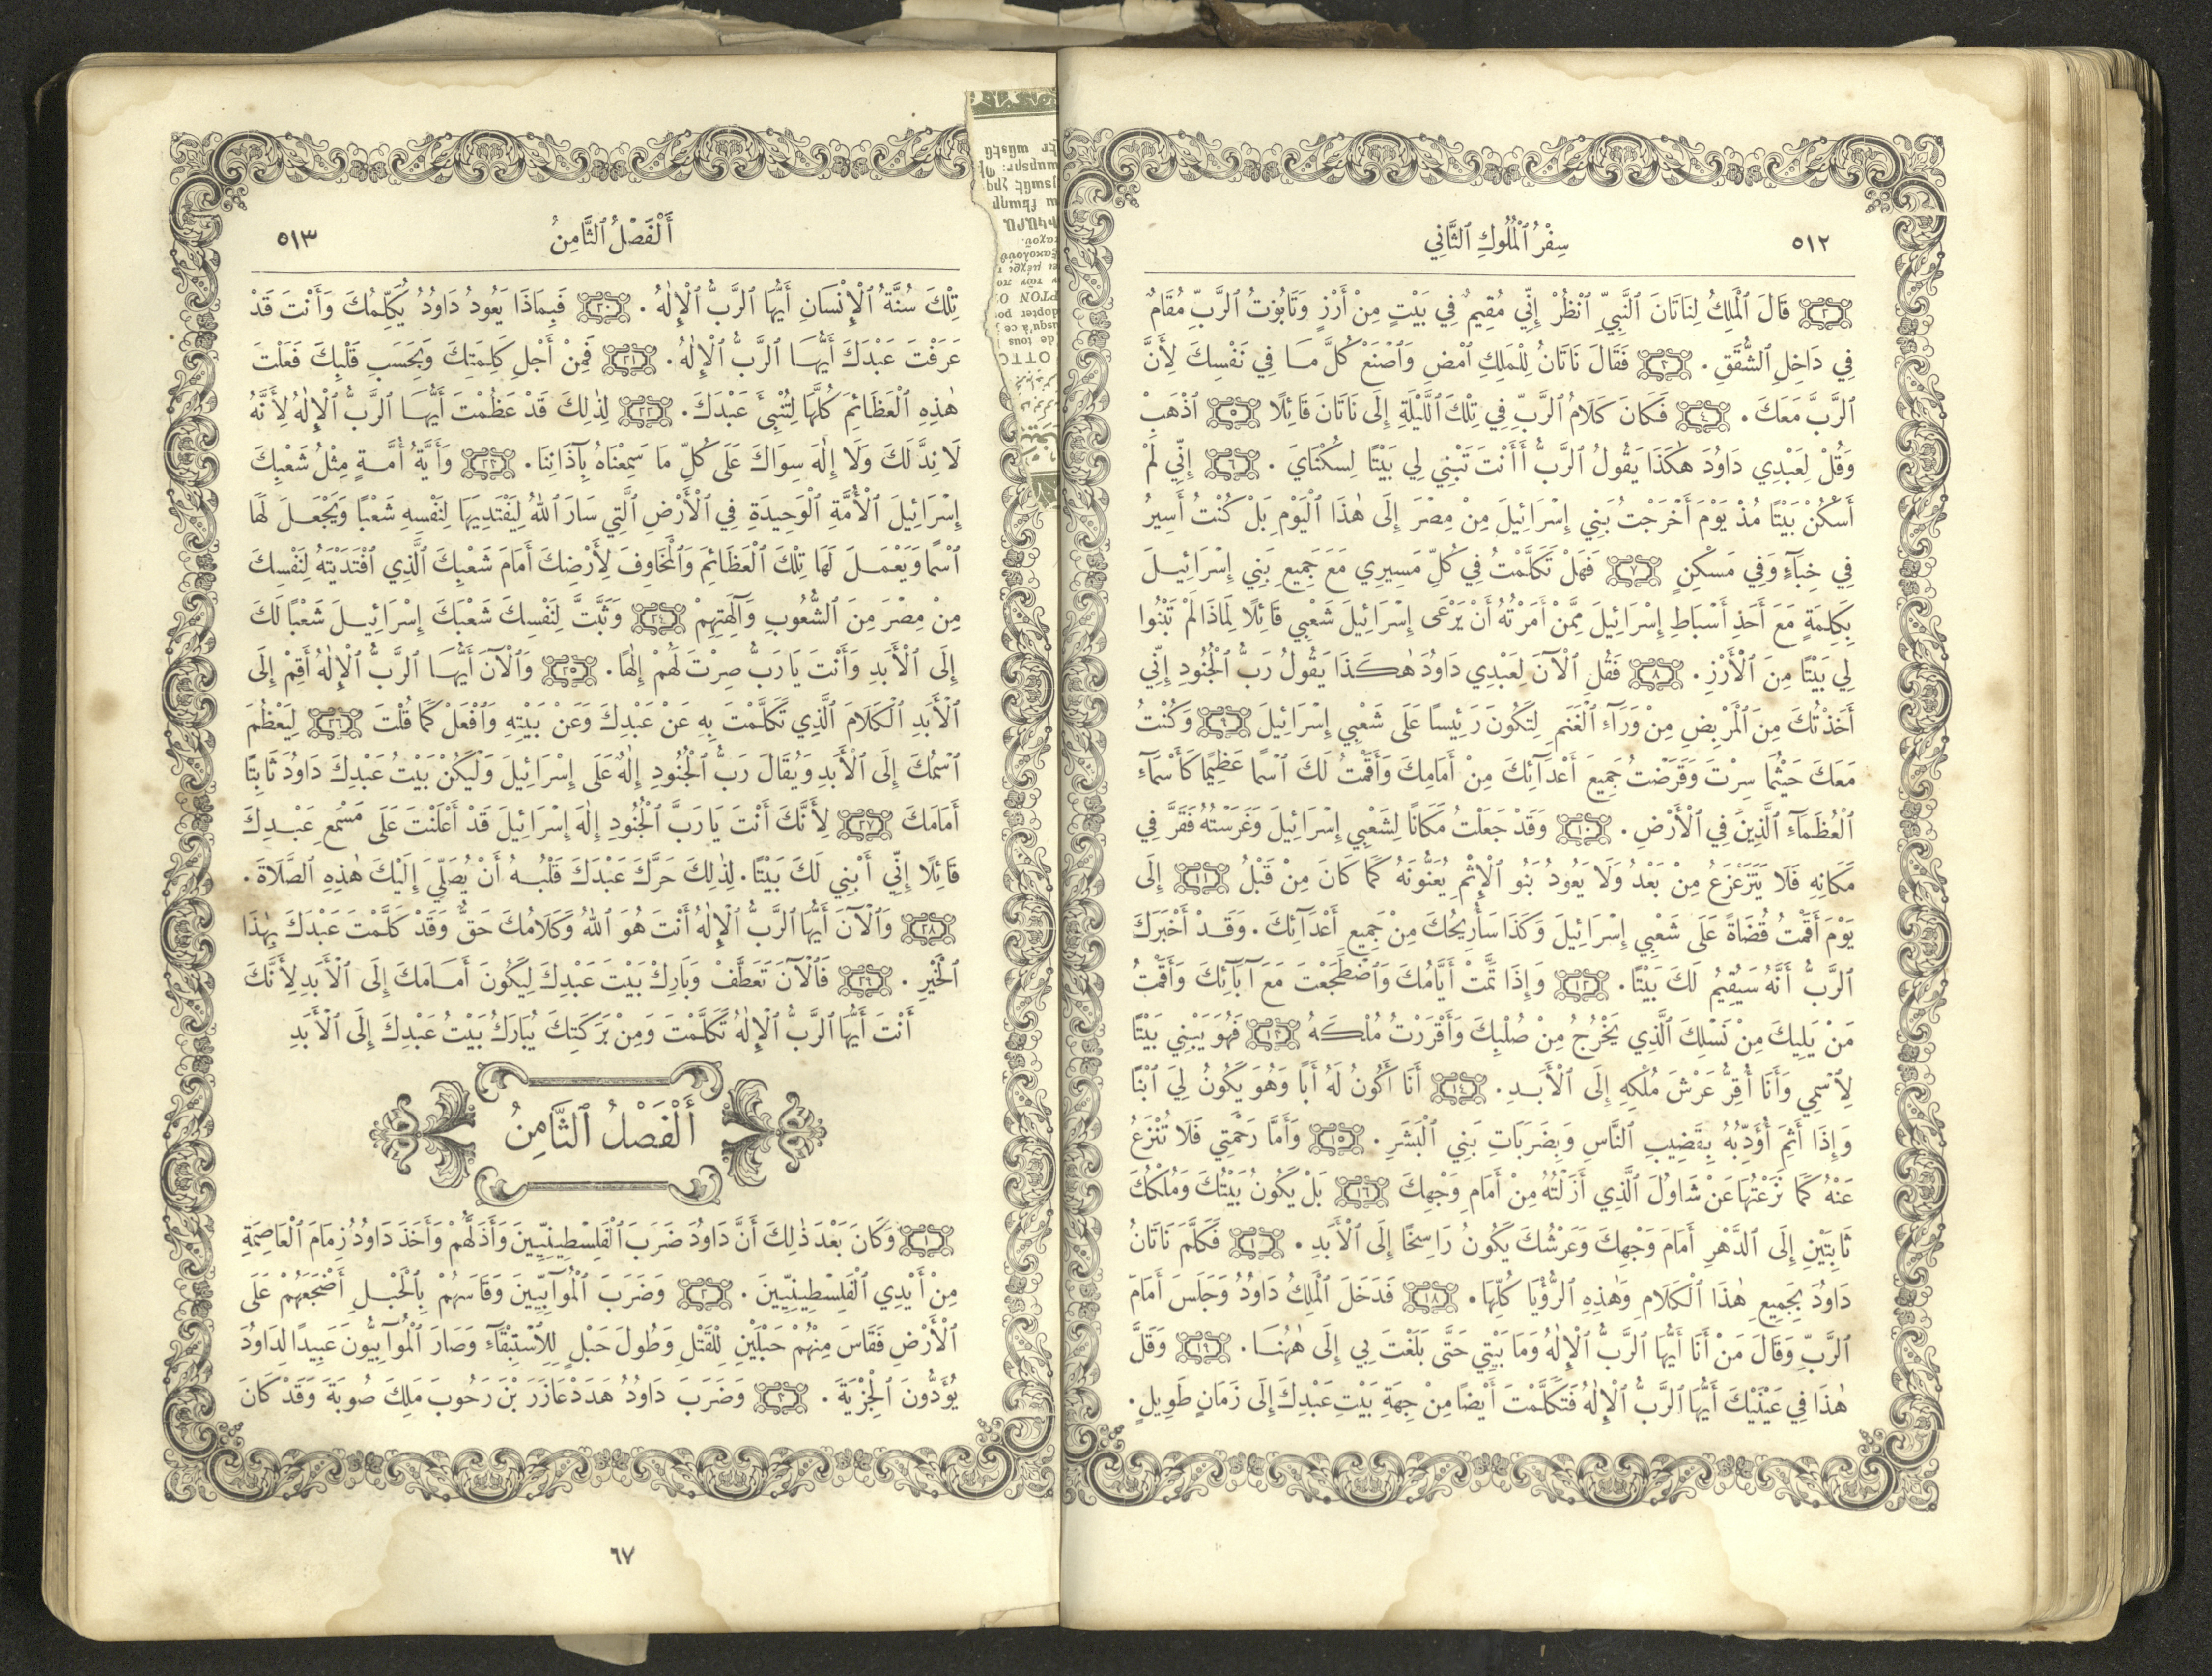 ٥١٢
سِفْرُ ٱلْمُلُوكِ ٱلثَّانِي
﴿٢﴾ قَالَ ٱلْمَلِكُ لِنَاتَانَ ٱلنَّبِيِّ ٱنْظُرْ إِنِّي مُقِيمٌ فِي بَيْتٍ مِنْ أَرْزٍ وَتَابُوتُ ٱلرَّبِّ مُقَامٌ
فِي دَاخِلِ ٱلشُّقَقِ . ﴿٣﴾ فَقَالَ نَاتَانُ لِلْمَلِكِ ٱمْضِ وَٱصْنَعْ كُلَّ مَا فِي نَفْسِكَ لِأَنَّ
ٱلرَّبَّ مَعَكَ . ﴿٤﴾ فَكَانَ كَلَامُ ٱلرَّبِّ فِي تِلْكَ ٱللَّيْلَةِ إِلَى نَاتَانَ قَائِلًا ﴿٥﴾ ٱذْهَبْ
وَقُلْ لِعَبْدِي دَاوُدَ هٰكَذَا يَقُولُ ٱلرَّبُّ أَأَنْتَ تَبْنِي لِي بَيْتًا لِسُكْنَايَ . ﴿٦﴾ إِنِّي لَمْ
أَسْكُنْ بَيْتًا مُذْ يَوْمَ أَخْرَجْتُ بَنِي إِسْرَائِيلَ مِنْ مِصْرَ إِلَى هٰذَا ٱلْيَوْمِ بَلْ كُنْتُ أَسِيرُ
فِي خِبَآءٍ وَفِي مَسْكِنٍ ﴿٧﴾ فَهَلْ تَكَلَّمْتُ فِي كُلِّ مَسِيرِي مَعَ جَمِيعِ بَنِي إِسْرَائِيلَ
بِكَلِمَةٍ مَعَ أَحَدِ أَسْبَاطِ إِسْرَائِيلَ مِمَّنْ أَمَرْتُهُ أَنْ يَرْعَى إِسْرَائِيلَ شَعْبِي قَائِلًا لِمَاذَا لَمْ تَبْنُوا
لِي بَيْتًا مِنَ ٱلْأَرْزِ . ﴿٨﴾ فَقُلِ ٱلْآنَ لِعَبْدِي دَاوُدَ هٰكَذَا يَقُولُ رَبُّ ٱلْجُنُودِ إِنِّي
أَخَذْتُكَ مِنَ ٱلْمَرْبِضِ مِنْ وَرَآءِ ٱلْغَنَمِ لِتَكُونَ رَئِيسًا عَلَى شَعْبِي إِسْرَائِيلَ ﴿٩﴾ وَكُنْتُ
مَعَكَ حَيْثُمَا سِرْتَ وَقَرَضْتُ جَمِيعَ أَعْدَآئِكَ مِنْ أَمَامِكَ وَأَقَمْتُ لَكَ ٱسْمًا عَظِيمًا كَأَسْمَآءِ
ٱلْعُظَمَآءِ ٱلَّذِينَ فِي ٱلْأَرْضِ . ﴿١٠﴾ وَقَدْ جَعَلْتُ مَكَانًا لِشَعْبِي إِسْرَائِيلَ وَغَرَسْتُهُ فَقَرَّ فِي
مَكَانِهِ فَلَا يَتَزَعْزَعُ مِنْ بَعْدُ وَلَا يَعُودُ بَنُو ٱلْإِثْمِ يُعَنُّونَهُ كَمَا كَانَ مِنْ قَبْلُ ﴿١١﴾ إِلَى
يَوْمَ أَقَمْتُ قُضَاةً عَلَى شَعْبِي إِسْرَائِيلَ وَكَذَا سَأُرِيحُكَ مِنْ جَمِيعِ أَعْدَآئِكَ . وَقَدْ أَخْبَرَكَ
ٱلرَّبُّ أَنَّهُ سَيُقِيمُ لَكَ بَيْتًا . ﴿١٢﴾ وَإِذَا تَمَّتْ أَيَّامُكَ وَٱضْطَجَعْتَ مَعَ آبَآئِكَ وَأَقَمْتُ
مَنْ يَلِيكَ مِنْ نَسْلِكَ ٱلَّذِي يَخْرُجُ مِنْ صُلْبِكَ وَأَقْرَرْتُ مُلْكَهُ ﴿١٣﴾ فَهُوَ يَبْنِي بَيْتًا
لِٱسْمِي وَأَنَا أُقِرُّ عَرْشَ مُلْكِهِ إِلَى ٱلْأَبَدِ . ﴿١٤﴾ أَنَا أَكُونُ لَهُ أَبًا وَهُوَ يَكُونُ لِيَ ٱبْنًا
وَإِذَا أَثِمَ أُؤَدِّبُهُ بِقَضِيبِ ٱلنَّاسِ وَبِضَرَبَاتِ بَنِي ٱلْبَشَرِ . ﴿١٥﴾ وَأَمَّا رَحْمَتِي فَلَا تُنْزَعُ
عَنْهُ كَمَا نَزَعْتُهَا عَنْ شَاوُلَ ٱلَّذِي أَزَلْتُهُ مِنْ أَمَامِ وَجْهِكَ ﴿١٦﴾ بَلْ يَكُونُ بَيْتُكَ وَمُلْكُكَ
ثَابِتَيْنِ إِلَى ٱلدَّهْرِ أَمَامَ وَجْهِكَ وَعَرْشُكَ يَكُونُ رَاسِخًا إِلَى ٱلْأَبَدِ . ﴿١٧﴾ فَكَلَّمَ نَاتَانُ
دَاوُدَ بِجَمِيعِ هٰذَا ٱلْكَلَامِ وَهٰذِهِ ٱلرُّؤْيَا كُلِّهَا . ﴿١٨﴾ فَدَخَلَ ٱلْمَلِكُ دَاوُدُ وَجَلَسَ أَمَامَ
ٱلرَّبِّ وَقَالَ مَنْ أَنَا أَيُّهَا ٱلرَّبُّ ٱلْإِلٰهُ وَمَا بَيْتِي حَتَّى بَلَغْتَ بِي إِلَى هٰهُنَا . ﴿١٩﴾ وَقَلَّ
هٰذَا فِي عَيْنَيْكَ أَيُّهَا ٱلرَّبُّ ٱلْإِلٰهُ فَتَكَلَّمْتَ أَيْضًا مِنْ جِهَةِ بَيْتِ عَبْدِكَ إِلَى زَمَانٍ طَوِيلٍ .
أَلْفَصْلُ ٱلثَّامِنُ
٥١٣
تِلْكَ سُنَّةُ ٱلْإِنْسَانِ أَيُّهَا ٱلرَّبُّ ٱلْإِلٰهُ . ﴿٢٠﴾ فَبِمَاذَا يَعُودُ دَاوُدُ يُكَلِّمُكَ وَأَنْتَ قَدْ
عَرَفْتَ عَبْدَكَ أَيُّهَا ٱلرَّبُّ ٱلْإِلٰهُ . ﴿٢١﴾ فَمِنْ أَجْلِ كَلِمَتِكَ وَبِحَسَبِ قَلْبِكَ فَعَلْتَ
هٰذِهِ ٱلْعَظَائِمَ كُلَّهَا لِتُنْبِئَ عَبْدَكَ . ﴿٢٢﴾ لِذٰلِكَ قَدْ عَظُمْتَ أَيُّهَا ٱلرَّبُّ ٱلْإِلٰهُ لِأَنَّهُ
لَا نِدَّ لَكَ وَلَا إِلٰهَ سِوَاكَ عَلَى كُلِّ مَا سَمِعْنَاهُ بِآذَانِنَا . ﴿٢٣﴾ وَأَيَّةُ أُمَّةٍ مِثْلُ شَعْبِكَ
إِسْرَائِيلَ ٱلْأُمَّةِ ٱلْوَحِيدَةِ فِي ٱلْأَرْضِ ٱلَّتِي سَارَ ٱللهُ لِيَفْتَدِيَهَا لِنَفْسِهِ شَعْبًا وَيَجْعَلَ لَهَا
ٱسْمًا وَيَعْمَلَ لَهَا تِلْكَ ٱلْعَظَائِمَ وَٱلْمَخَاوِفَ لِأَرْضِكَ أَمَامَ شَعْبِكَ ٱلَّذِي ٱفْتَدَيْتَهُ لِنَفْسِكَ
مِنْ مِصْرَ مِنَ ٱلشُّعُوبِ وَآلِهَتِهِمْ ﴿٢٤﴾ وَثَبَّتَّ لِنَفْسِكَ شَعْبَكَ إِسْرَائِيلَ شَعْبًا لَكَ
إِلَى ٱلْأَبَدِ وَأَنْتَ يَا رَبُّ صِرْتَ لَهُمْ إِلٰهًا . ﴿٢٥﴾ وَٱلْآنَ أَيُّهَا ٱلرَّبُّ ٱلْإِلٰهُ أَقِمْ إِلَى
ٱلْأَبَدِ ٱلْكَلَامَ ٱلَّذِي تَكَلَّمْتَ بِهِ عَنْ عَبْدِكَ وَعَنْ بَيْتِهِ وَٱفْعَلْ كَمَا قُلْتَ ﴿٢٦﴾ لِيَعْظُمَ
ٱسْمُكَ إِلَى ٱلْأَبَدِ وَيُقَالَ رَبُّ ٱلْجُنُودِ إِلٰهٌ عَلَى إِسْرَائِيلَ وَلْيَكُنْ بَيْتُ عَبْدِكَ دَاوُدَ ثَابِتًا
أَمَامَكَ ﴿٢٧﴾ لِأَنَّكَ أَنْتَ يَا رَبَّ ٱلْجُنُودِ إِلٰهَ إِسْرَائِيلَ قَدْ أَعْلَنْتَ عَلَى مَسْمَعِ عَبْدِكَ
قَائِلًا إِنِّي أَبْنِي لَكَ بَيْتًا . لِذٰلِكَ حَرَّكَ عَبْدَكَ قَلْبُهُ أَنْ يُصَلِّيَ إِلَيْكَ هٰذِهِ ٱلصَّلَاةَ .
﴿٢٨﴾ وَٱلْآنَ أَيُّهَا ٱلرَّبُّ ٱلْإِلٰهُ أَنْتَ هُوَ ٱللهُ وَكَلَامُكَ حَقٌّ وَقَدْ كَلَّمْتَ عَبْدَكَ بِهٰذَا
ٱلْخَيْرِ . ﴿٢٩﴾ فَٱلْآنَ تَعَطَّفْ وَبَارِكْ بَيْتَ عَبْدِكَ لِيَكُونَ أَمَامَكَ إِلَى ٱلْأَبَدِ لِأَنَّكَ
أَنْتَ أَيُّهَا ٱلرَّبُّ ٱلْإِلٰهُ تَكَلَّمْتَ وَمِنْ بَرَكَتِكَ يُبَارَكُ بَيْتُ عَبْدِكَ إِلَى ٱلْأَبَدِ
أَلْفَصْلُ ٱلثَّامِنُ
﴿١﴾ وَكَانَ بَعْدَ ذٰلِكَ أَنَّ دَاوُدَ ضَرَبَ ٱلْفَلِسْطِينِيِّينَ وَأَذَلَّهُمْ وَأَخَذَ دَاوُدُ زِمَامَ ٱلْعَاصِمَةِ
مِنْ أَيْدِي ٱلْفَلِسْطِينِيِّينَ . ﴿٢﴾ وَضَرَبَ ٱلْمُوآبِيِّينَ وَقَاسَهُمْ بِٱلْحَبْلِ أَضْجَعَهُمْ عَلَى
ٱلْأَرْضِ فَقَاسَ مِنْهُمْ حَبْلَيْنِ لِلْقَتْلِ وَطُولَ حَبْلٍ لِلِٱسْتِبْقَآءِ وَصَارَ ٱلْمُوآبِيُّونَ عَبِيدًا لِدَاوُدَ
يُؤَدُّونَ ٱلْجِزْيَةَ . ﴿٣﴾ وَضَرَبَ دَاوُدُ هَدَدْعَازَرَ بْنَ رَحُوبَ مَلِكَ صُوبَةَ وَقَدْ كَانَ
٦٧